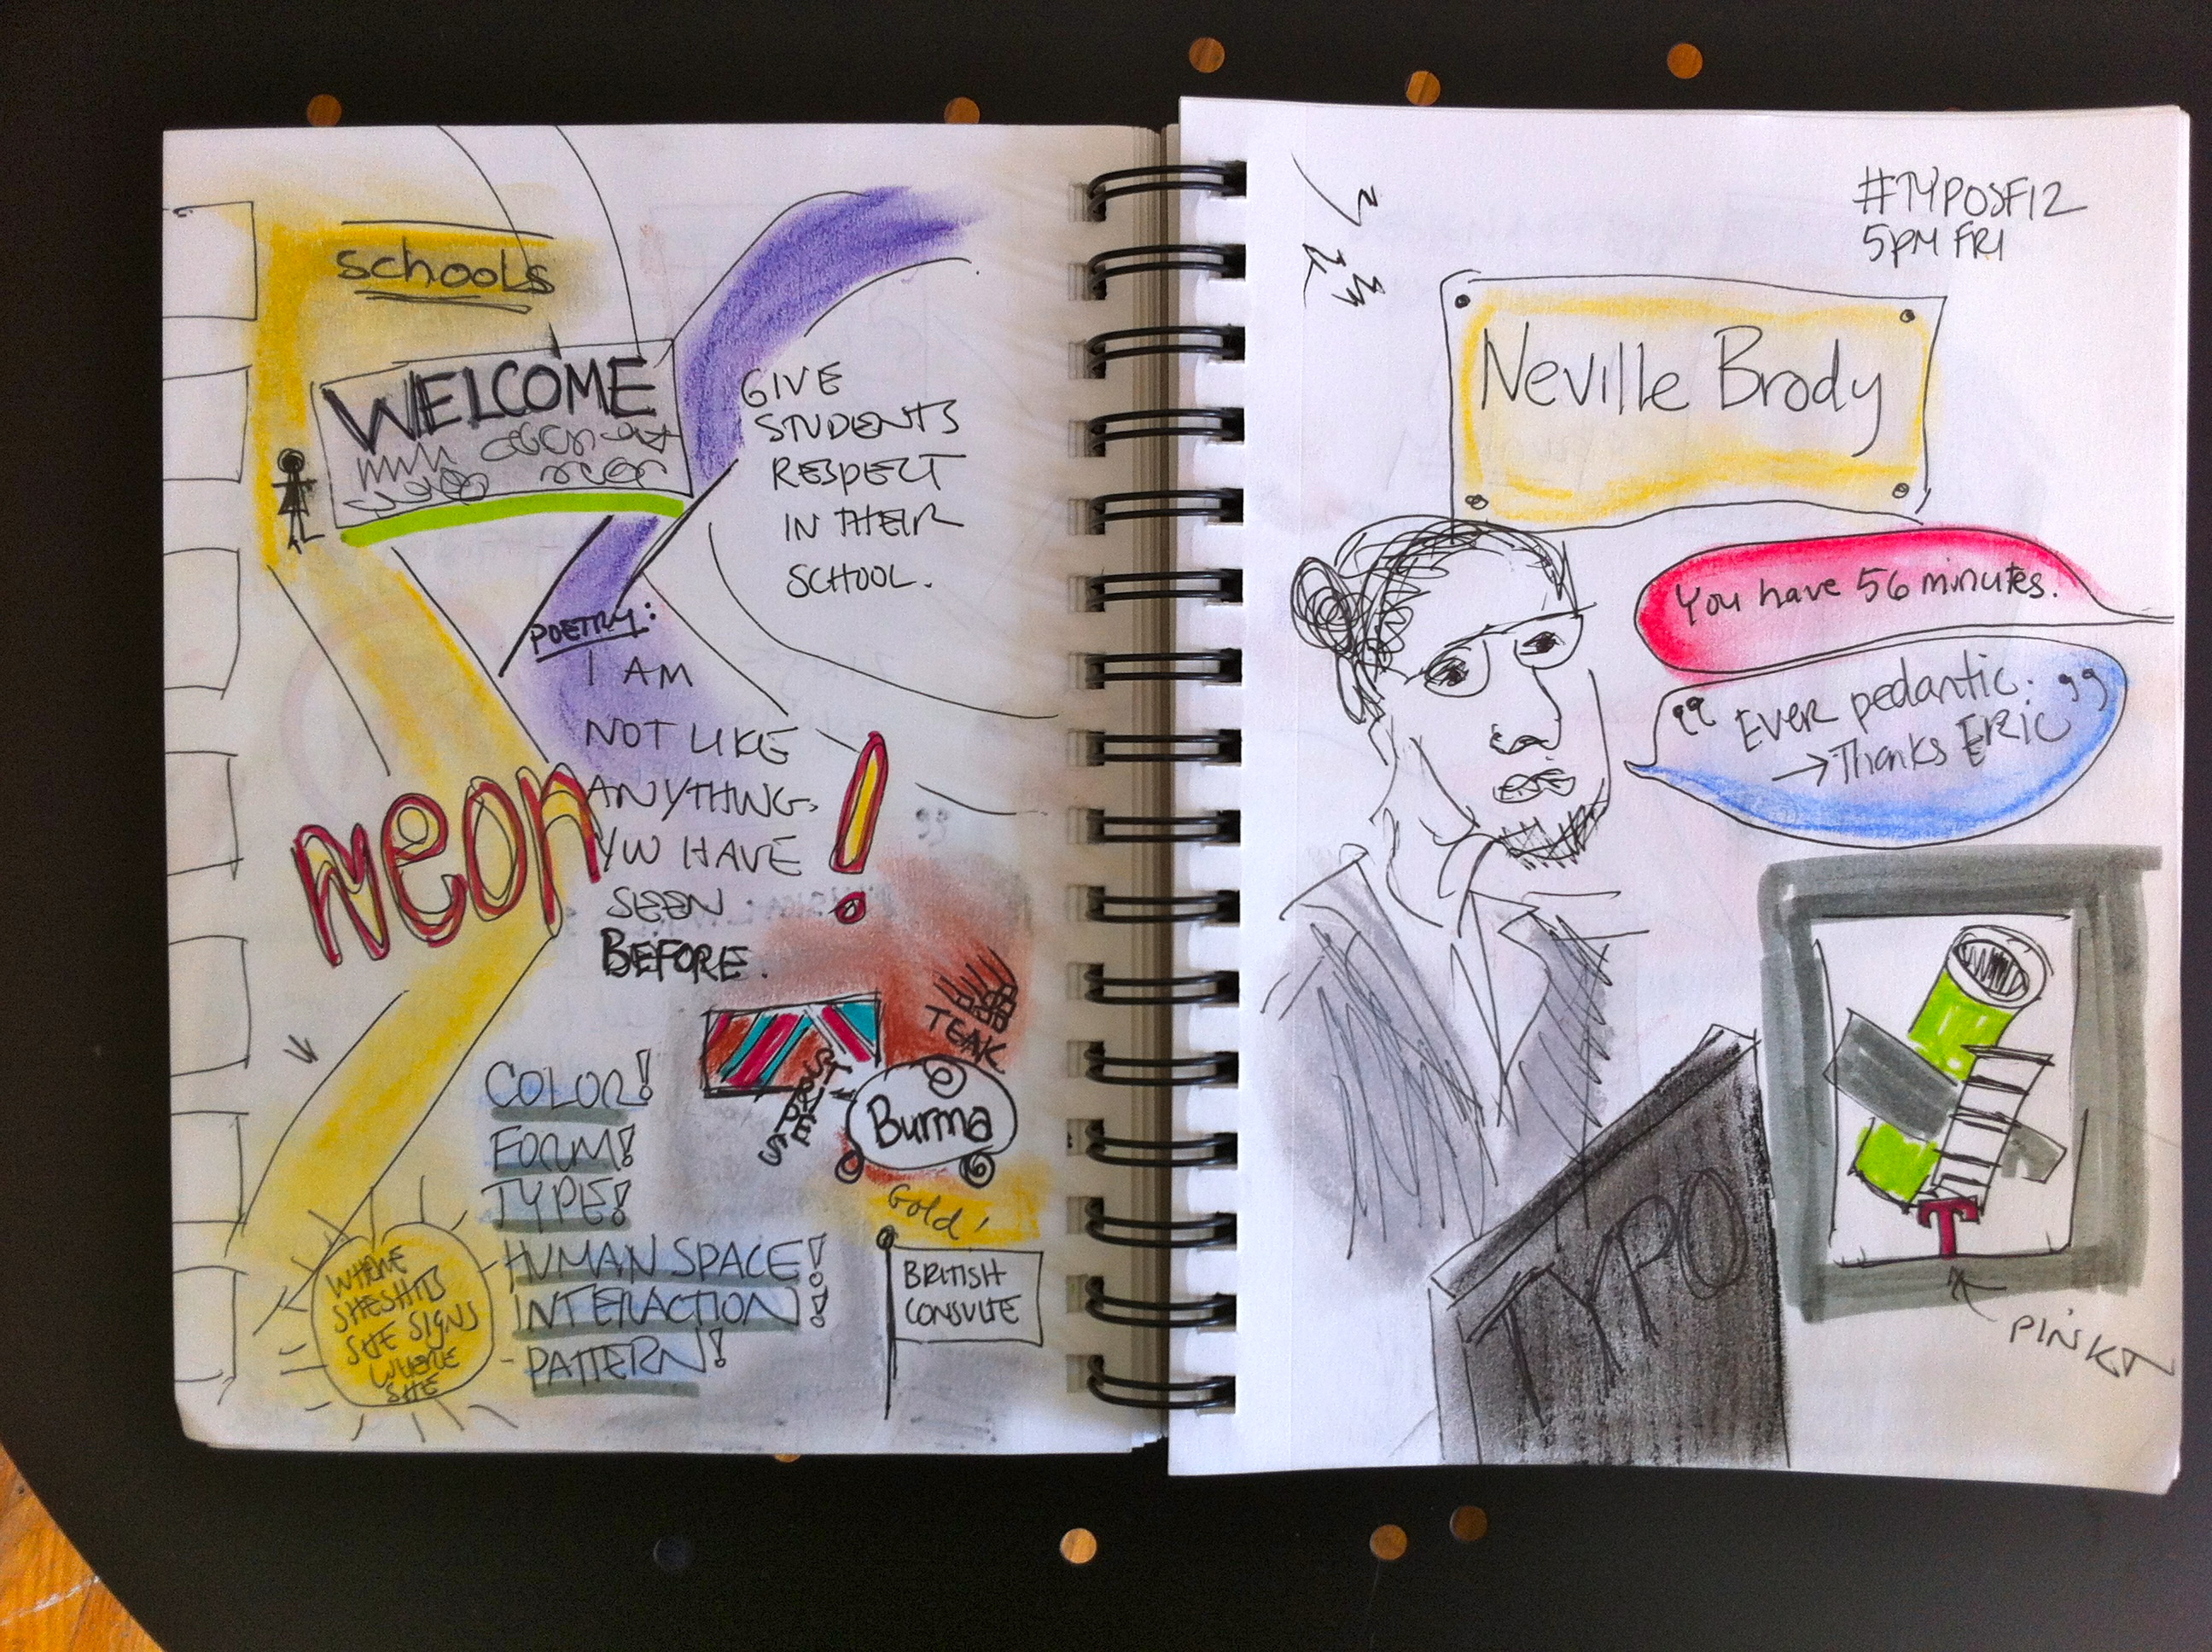 schools
WELCOME
GIVE
STUDENTS
RESPECT
IN THEIR
SCHOOL.
POETRY:
I AM
NOT LIKE
ANYTHING
YOU HAVE
SEEN
BEFORE.
!
neon
TEAK
STRIPES
Burma
Gold!
BRITISH
CONSULTE
COLOR!
FORM!
TYPE!
HUMAN SPACE!
INTERACTION!
PATTERN!
WHERE
SHE SIGNS
WHERE
SHE
#TYPOSF12
5PM FRI
Neville Brody
You have 56 minutes.
"Ever pedantic.
→Thanks ERIC"
TYPO
T